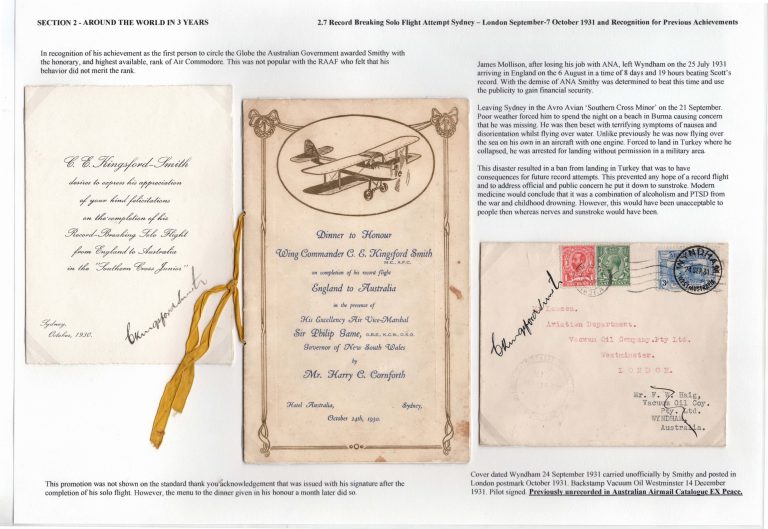 SECTION 2 - AROUND THE WORLD IN 3 YEARS
2.7 Record Breaking Solo Flight Attempt Sydney – London September-7 October 1931 and Recognition for Previous Achievements
In recognition of his achievement as the first person to circle the Globe the Australian Government awarded Smithy with
the honorary, and highest available, rank of Air Commodore. This was not popular with the RAAF who felt that his
behavior did not merit the rank.
C. E. Kingsford-Smith
desires to express his appreciation
of your kind felicitations
on the completion of his
Record-Breaking Solo Flight
from England to Australia
in the "Southern Cross Junior"
Sydney,
October, 1930.
CKingsfordSmith
Dinner to Honour
Wing Commander C. E. Kingsford Smith
M.C., A.F.C.
on completion of his record flight
England to Australia
in the presence of
His Excellency Air Vice-Marshal
Sir Philip Game, G.B.E., K.C.B., D.S.O.
Governor of New South Wales
by
Mr. Harry C. Cornforth
Hotel Australia, Sydney,
October 24th, 1930.
James Mollison, after losing his job with ANA, left Wyndham on the 25 July 1931
arriving in England on the 6 August in a time of 8 days and 19 hours beating Scott's
record. With the demise of ANA Smithy was determined to beat this time and use
the publicity to gain financial security.
Leaving Sydney in the Avro Avian 'Southern Cross Minor' on the 21 September.
Poor weather forced him to spend the night on a beach in Burma causing concern
that he was missing. He was then beset with terrifying symptoms of nausea and
disorientation whilst flying over water. Unlike previously he was now flying over
the sea on his own in an aircraft with one engine. Forced to land in Turkey where he
collapsed, he was arrested for landing without permission in a military area.
This disaster resulted in a ban from landing in Turkey that was to have
consequences for future record attempts. This prevented any hope of a record flight
and to address official and public concern he put it down to sunstroke. Modern
medicine would conclude that it was a combination of alcoholism and PTSD from
the war and childhood drowning. However, this would have been unacceptable to
people then whereas nerves and sunstroke would have been.
WYNDHAM
CKingsfordSmith
Aviation Department.
Vacuum Oil Company.Pty Ltd.
Westminster.
LONDON.
Mr. F. W. Haig,
Vacuum Oil Coy.
Pty. Ltd.
WYNDHAM
Australia.
This promotion was not shown on the standard thank you acknowledgement that was issued with his signature after the
completion of his solo flight. However, the menu to the dinner given in his honour a month later did so.
Cover dated Wyndham 24 September 1931 carried unofficially by Smithy and posted in
London postmark October 1931. Backstamp Vacuum Oil Westminster 14 December
1931. Pilot signed. Previously unrecorded in Australian Airmail Catalogue EX Peace.